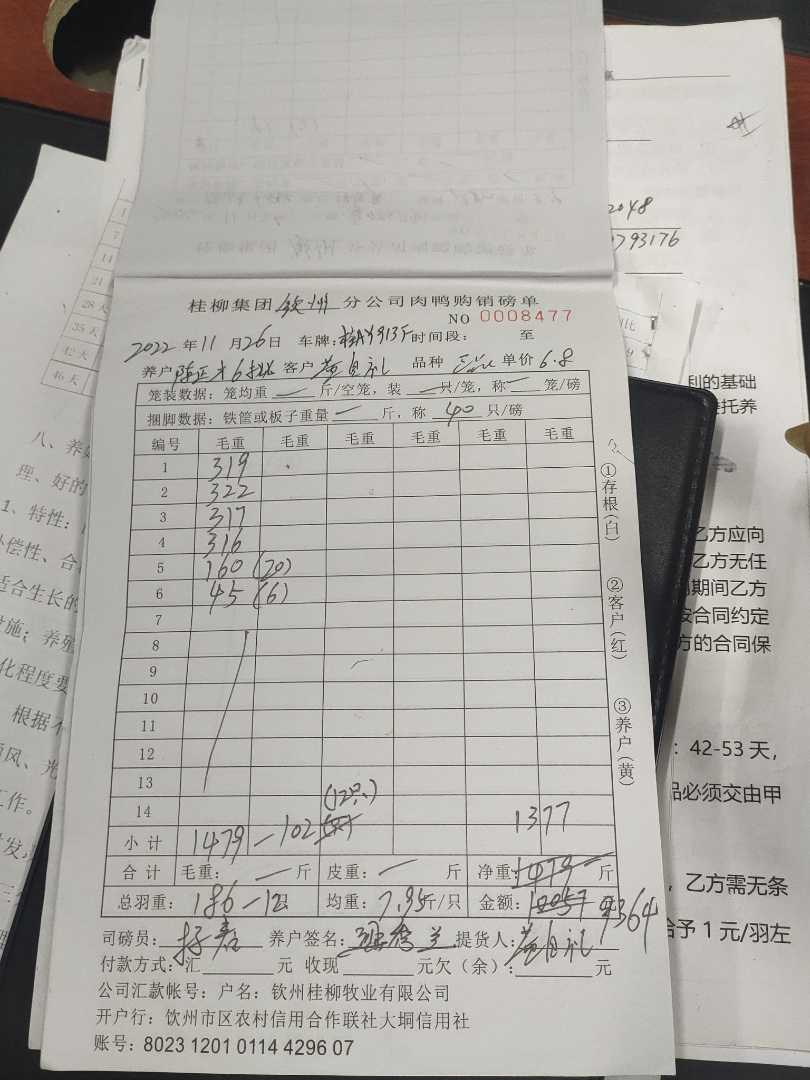 桂柳集团 钦州 分公司肉鸭购销磅单
NO 0008477
2022 年 11 月 26 日 车牌: 时间段: 至
养户 客户 品种 单价 6.8
笼装数据：笼均重 — 斤/空笼，装 — 只/笼，称 — 笼/磅
捆脚数据：铁筐或板子重量 — 斤，称 40 只/磅
编号 毛重 毛重 毛重 毛重 毛重 毛重
1 319
2 322
3 317
4 316
5 160 (20)
6 45 (6)
7
8
9
10
11
12
13
14 (12只)
小计 1479 — 102 1377
合计 毛重: — 斤 皮重: — 斤 净重: 1479 斤
总羽重: 186-12只 均重: 7.95斤/只 金额: 10057 9364
司磅员: 养户签名: 提货人:
付款方式: 汇 元 收现 元欠（余）: 元
公司汇款帐号：户名：钦州桂柳牧业有限公司
开户行：饮州市区农村信用合作联社大垌信用社
账号：8023 1201 0114 4296 07
①存根(白)
②客户(红)
③养户(黄)
2048
793176
1
7
14
21
28天
35天
42天
46天
八、养
理、好的
1、特性：
补偿性、合
适合生长的
施；养殖
化程度要
根据不
通风、光
工作。
利的基础
托养
乙方应向
乙方无任
期间乙方
按合同约定
方的合同保
：42-53天，
品必须交由甲
，乙方需无条
给予1元/羽左